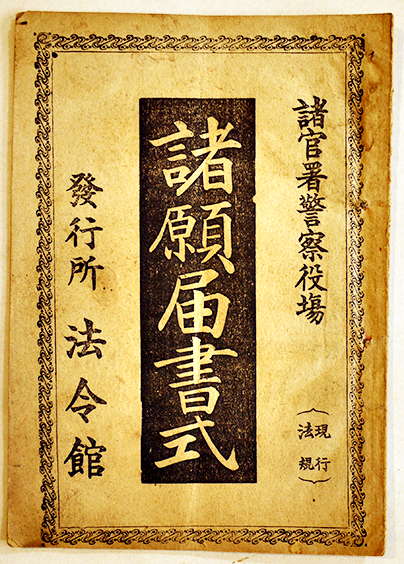 諸官署警察役塲
(現行法規)
諸願届書式
發行所 法令館